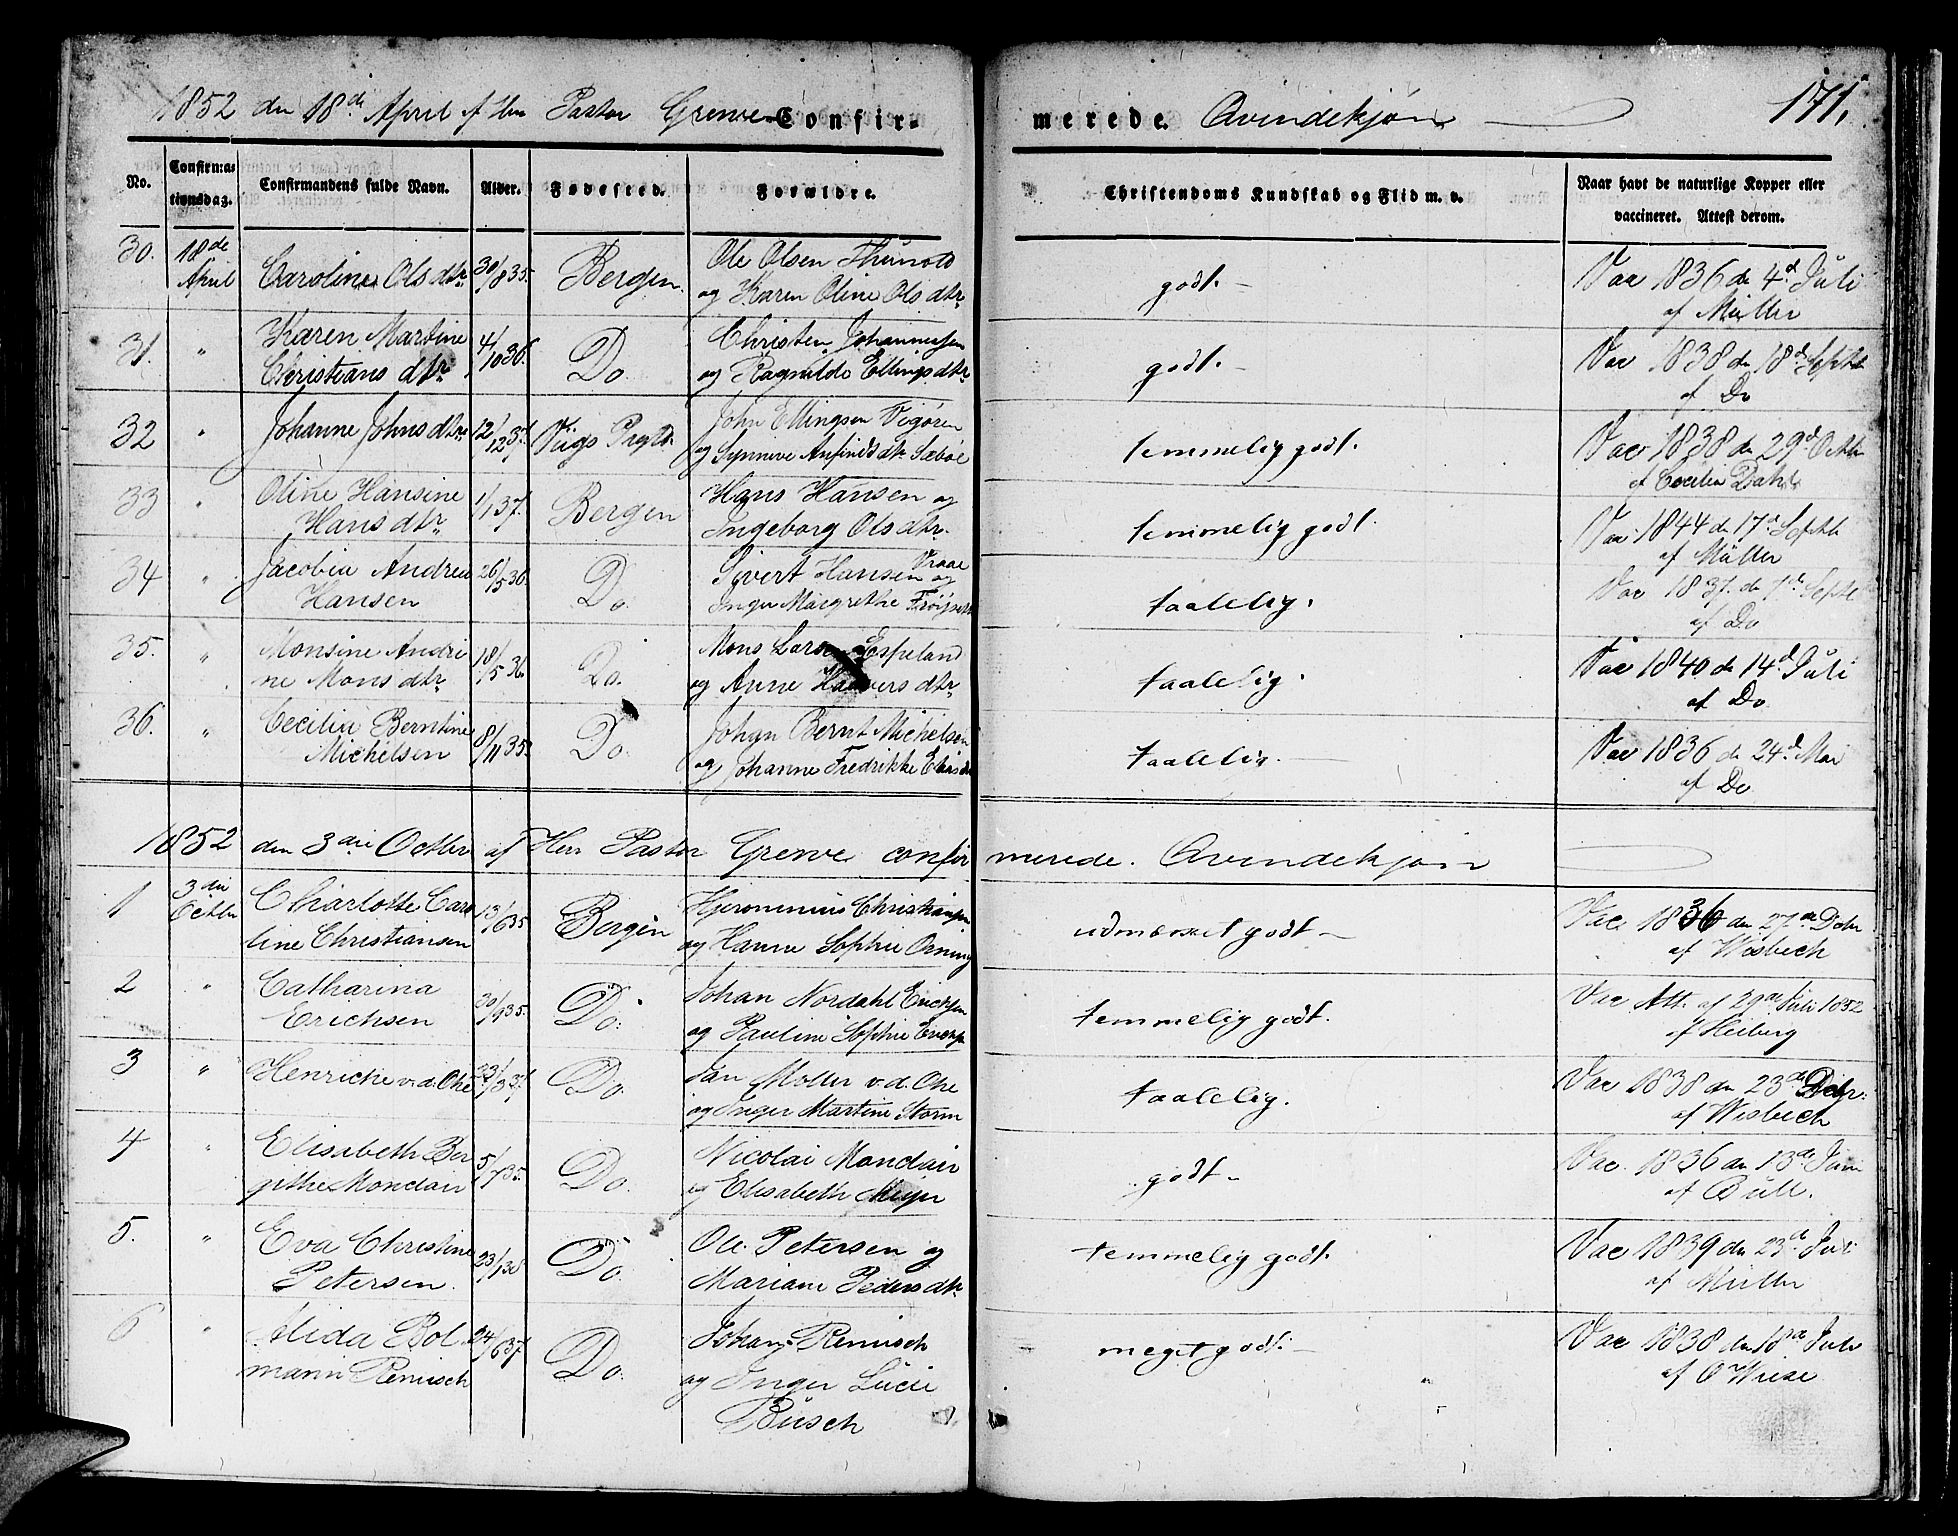 1852 den 18de April af Herr Pastor Greve Confir-
merede. Qvindekjøn 171.
No.
Confirma-
tionsdag.
Confirmandens fulde Navn.
Alder.
Fødested.
Forældre.
Christendoms Kundskab og Flid m. v.
Naar havt de naturlige Kopper eller
vaccineret. Attest derom.
30. 18de April Caroline Olsdtr. 30/8 35. Bergen. Ole Olsen
og Karen Oline Olsdtr godt. Vac 1836 de 4d Juli
af Müller
31. " Karen Martine
Christians dtr. 4/10 36. Do. Christen Johannessen
og Ragnilde Ellingsdtr godt. Vac 1838 de 18d Septb
af Do
32 " Johanne Johnsdtr. 12/12 37. John Ellingsen Vigøren
og Synneve Anfindsdtr Sæbøe temmelig godt. Vac 1838 de 29d Octb
af Cecilia Dahl
33 " Oline Hansine
Hansdtr. 1/1 37. Bergen Hans Hansen og
Ingeborg Olsdtr. temmelig godt. Vac. 1844 de 17d Septb
af Müller
34 " Jacobia Andrea
Hansen 26/5 36. Do. Sivert Hansen Vraae og
Inger Margrethe taalelig. Vac 1837. de 1d Septb
af Do
35. " Monsine Andri
ne Monsdtr. 18/5 36. Do. Mons Larsen Espeland
og Anne Halvers dtr. taalelig. Vac 1840 de 14d Juli
af Do
36. " Cecilia Berntine
Michelsen 8/11 35. Do. Johan Bernt Michelsen
og Johanne Fredrikke taalelig. Vac 1836 de 24d Mai
af Do
1852 den 3die Octber af Herr Pastor Greve confir
merede. Qvindekjøn
1 3die Octbr Charlotte Caro
line Christiansen 13/6 35 Bergen Hjeronimus Christiansen
og Hanne Sophie Orning udmærket godt Vac 1836 den 27de Decbr
af Wisbech
2 " Catharina
Erichsen 30/9 35. Do. Johan Nordahl Erichsen
og Pauline Sophie temmelig godt. Vac Att. af 29de Juli 1852
af Heiberg
3 " Henricke v. d. Ohe 23/3 37. Do. Jan Moller v. d. Ohe
og Inger Martine Storm taalelig. Vac 1838 den 23de Decbr.
af Wisbech
4 " Elisabeth Ber
githe Mondair 5/7 35. Do. Nicolai Mondair
og Elisabeth Meyer godt. Vac. 1836 den 13de Juni
af Büll.
5. " Eva Christine
Petersen. 23/1 38 Do. Ole Petersen og
Mariane Pedersdtr. temmelig godt. Vac 1839 den 23de Juli
af Müller
6 " Alida Bol
mann Remisch 24/6 37. Do. Johan Remisch
og Inger Lucie
Büsch meget godt. Vac 1838 den 18de Juli
af O Wiese